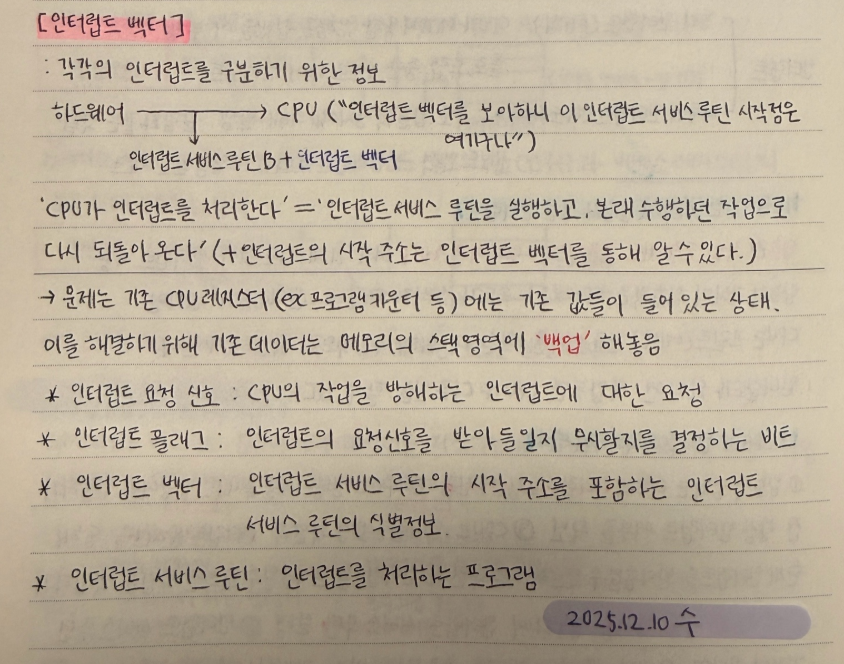 [인터럽트 벡터]
: 각각의 인터럽트를 구분하기 위한 정보
하드웨어 → CPU ("인터럽트 벡터를 보아하니 이 인터럽트 서비스 루틴 시작점은
여기구나")
인터럽트 서비스 루틴 B + 인터럽트 벡터
'CPU가 인터럽트를 처리한다' = '인터럽트 서비스 루틴을 실행하고, 본래 수행하던 작업으로
다시 되돌아 온다' (+ 인터럽트의 시작 주소는 인터럽트 벡터를 통해 알 수 있다.)
→ 문제는 기존 CPU 레지스터 (ex 프로그램 카운터 등)에는 기존 값들이 들어 있는 상태.
이를 해결하기 위해 기존 데이터는 메모리의 스택 영역에 '백업' 해놓음
* 인터럽트 요청 신호 : CPU의 작업을 방해하는 인터럽트에 대한 요청
* 인터럽트 플래그 : 인터럽트의 요청신호를 받아들일지 무시할지를 결정하는 비트
* 인터럽트 벡터 : 인터럽트 서비스 루틴의 시작 주소를 포함하는 인터럽트
서비스 루틴의 식별정보.
* 인터럽트 서비스 루틴 : 인터럽트를 처리하는 프로그램
2025.12.10 수